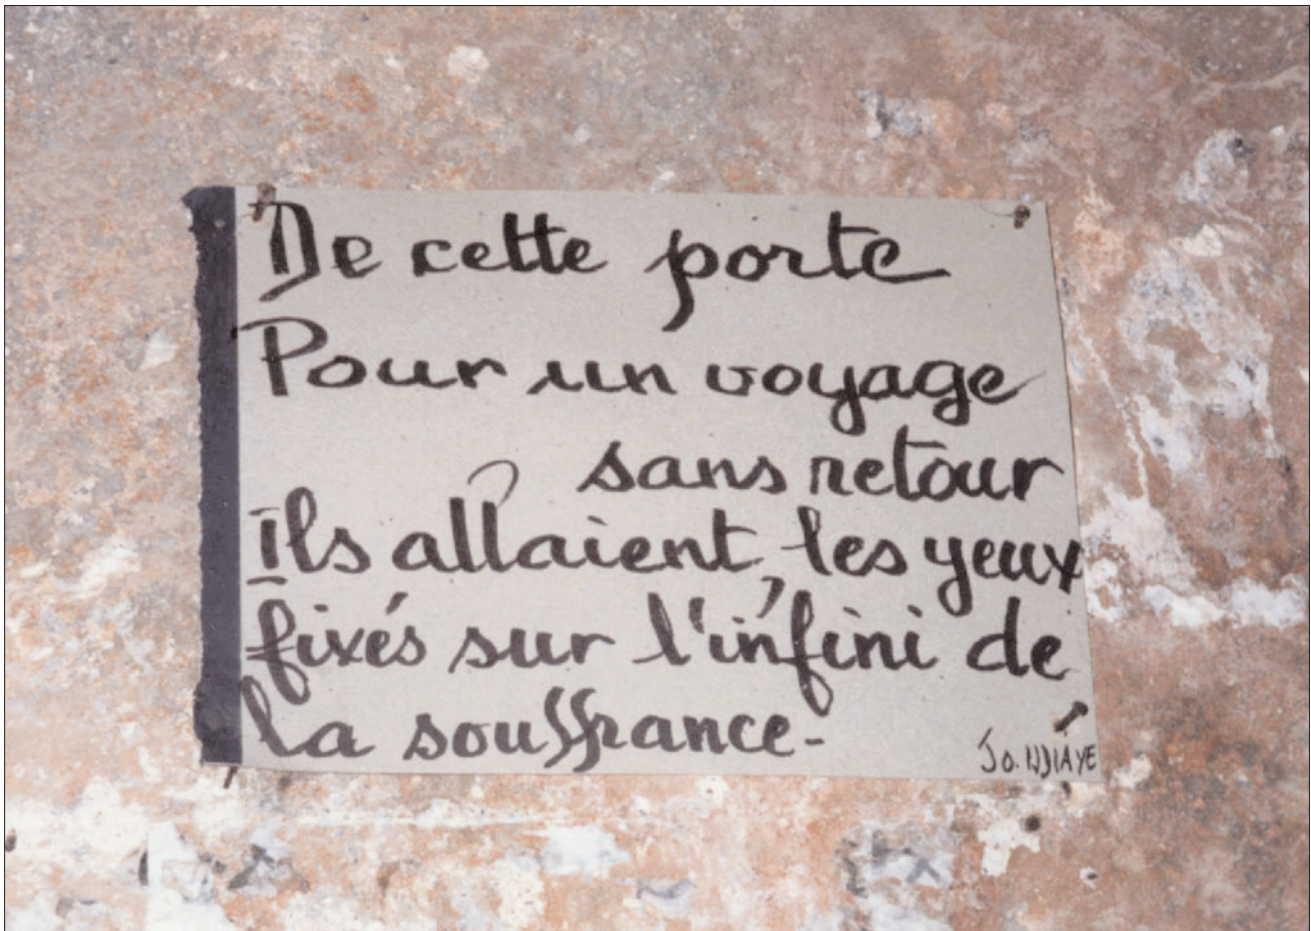 De cette porte
Pour un voyage
sans retour
Ils allaient, les yeux
fixés sur l'infini de
la souffrance-
Jo. NDIAYE